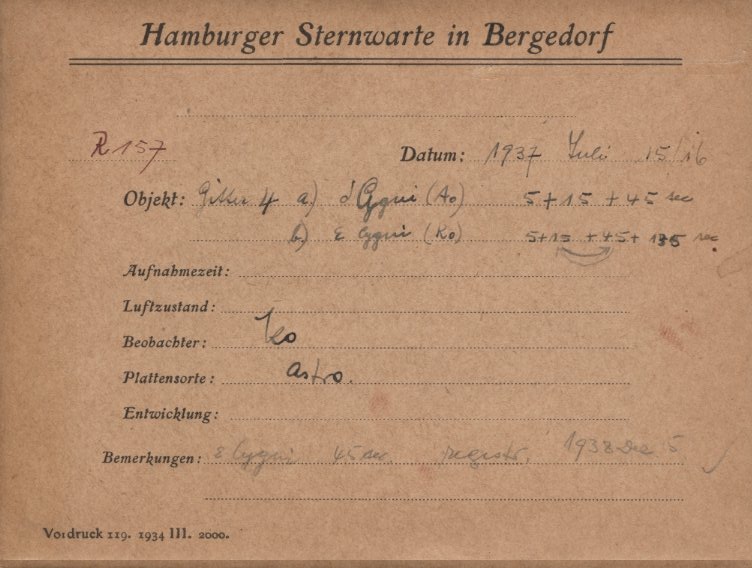 Hamburger Sternwarte in Bergedorf
R 157 Datum: 1937 Juli 15/16
Objekt: Gitter 4 a) δ Cygni (A0) 5 + 15 + 45 sec
b) ε Cygni (K0) 5 + 15 + 45 + 135 sec
Aufnahmezeit:
Luftzustand:
Beobachter: Ko
Plattensorte: Astro.
Entwicklung:
Bemerkungen: ε Cygni 45 sec. registr. 1938 Dez 5
Vordruck 119. 1934 III. 2000.